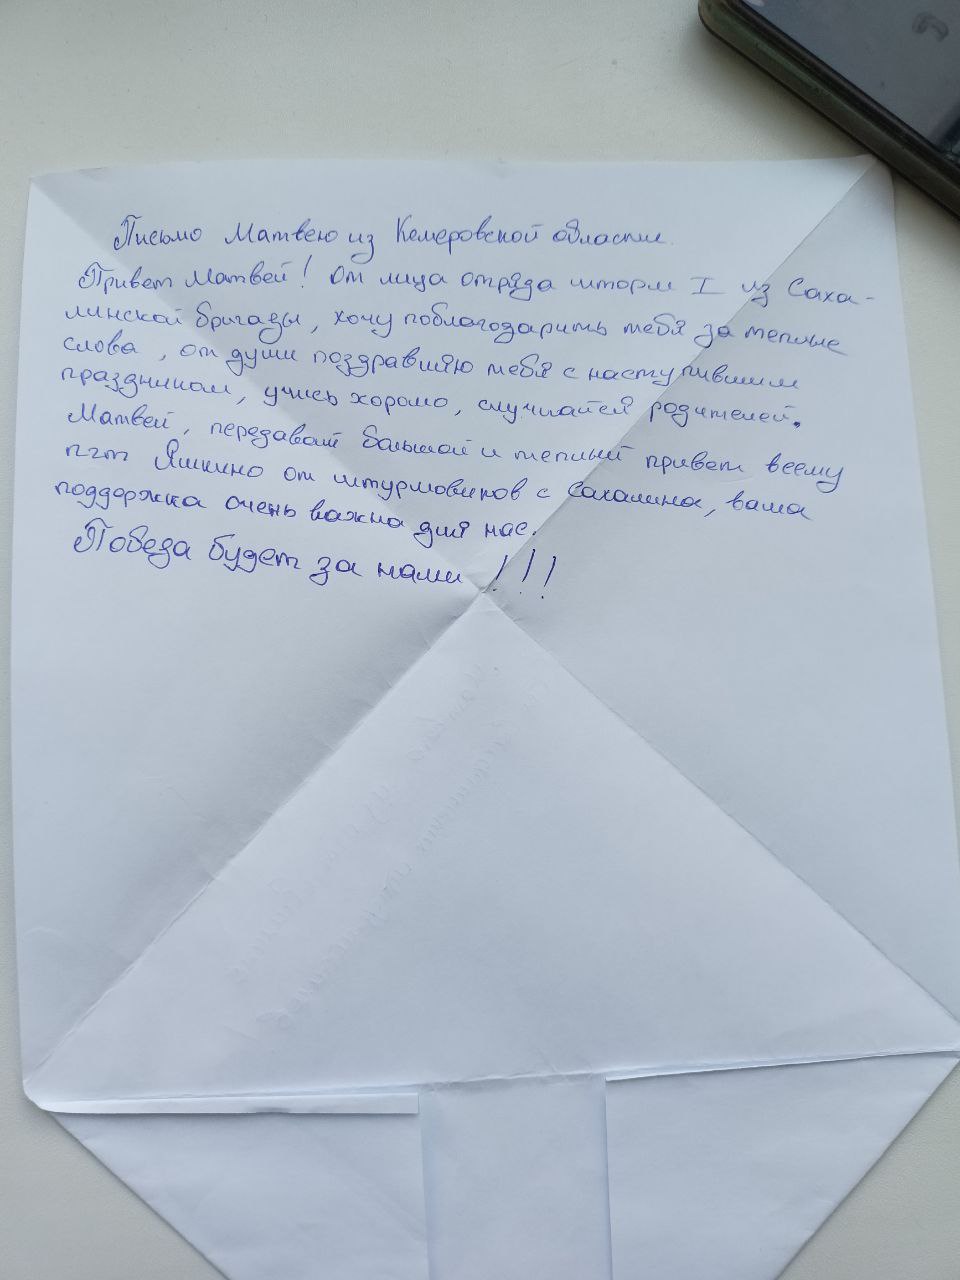 Письмо Матвею из Кемеровской области.
Привет Матвей! От лица отряда шторм I из Саха-
линской бригады, хочу поблагодарить тебя за теплые
слова, от души поздравляю тебя с наступившим
праздником, учись хорошо, слушайся родителей.
Матвей, передавай большой и теплый привет всему
пгт Яшкино от штурмовиков с Сахалина, ваша
поддержка очень важна для нас.
Победа будет за нами!!!